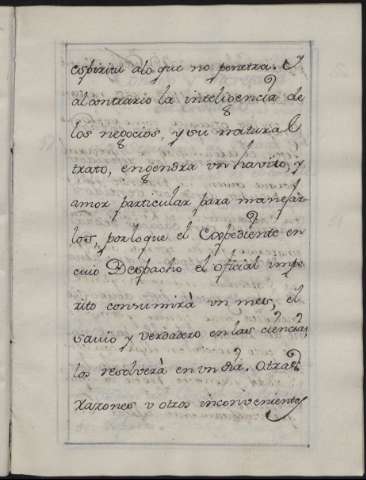 espiritu alo que no penetra. Y
al contrario la inteligencia de
los negocios, y su natural
trato, engendra un havito, y
amor particular para manejar
los, por lo que el Expediente en
cuio Despacho el oficial impe
rito consumirá un mes, el
savio y verdadero en las ciencias,
los resolverá en un dia. Otras
razones v otros inconvenientes